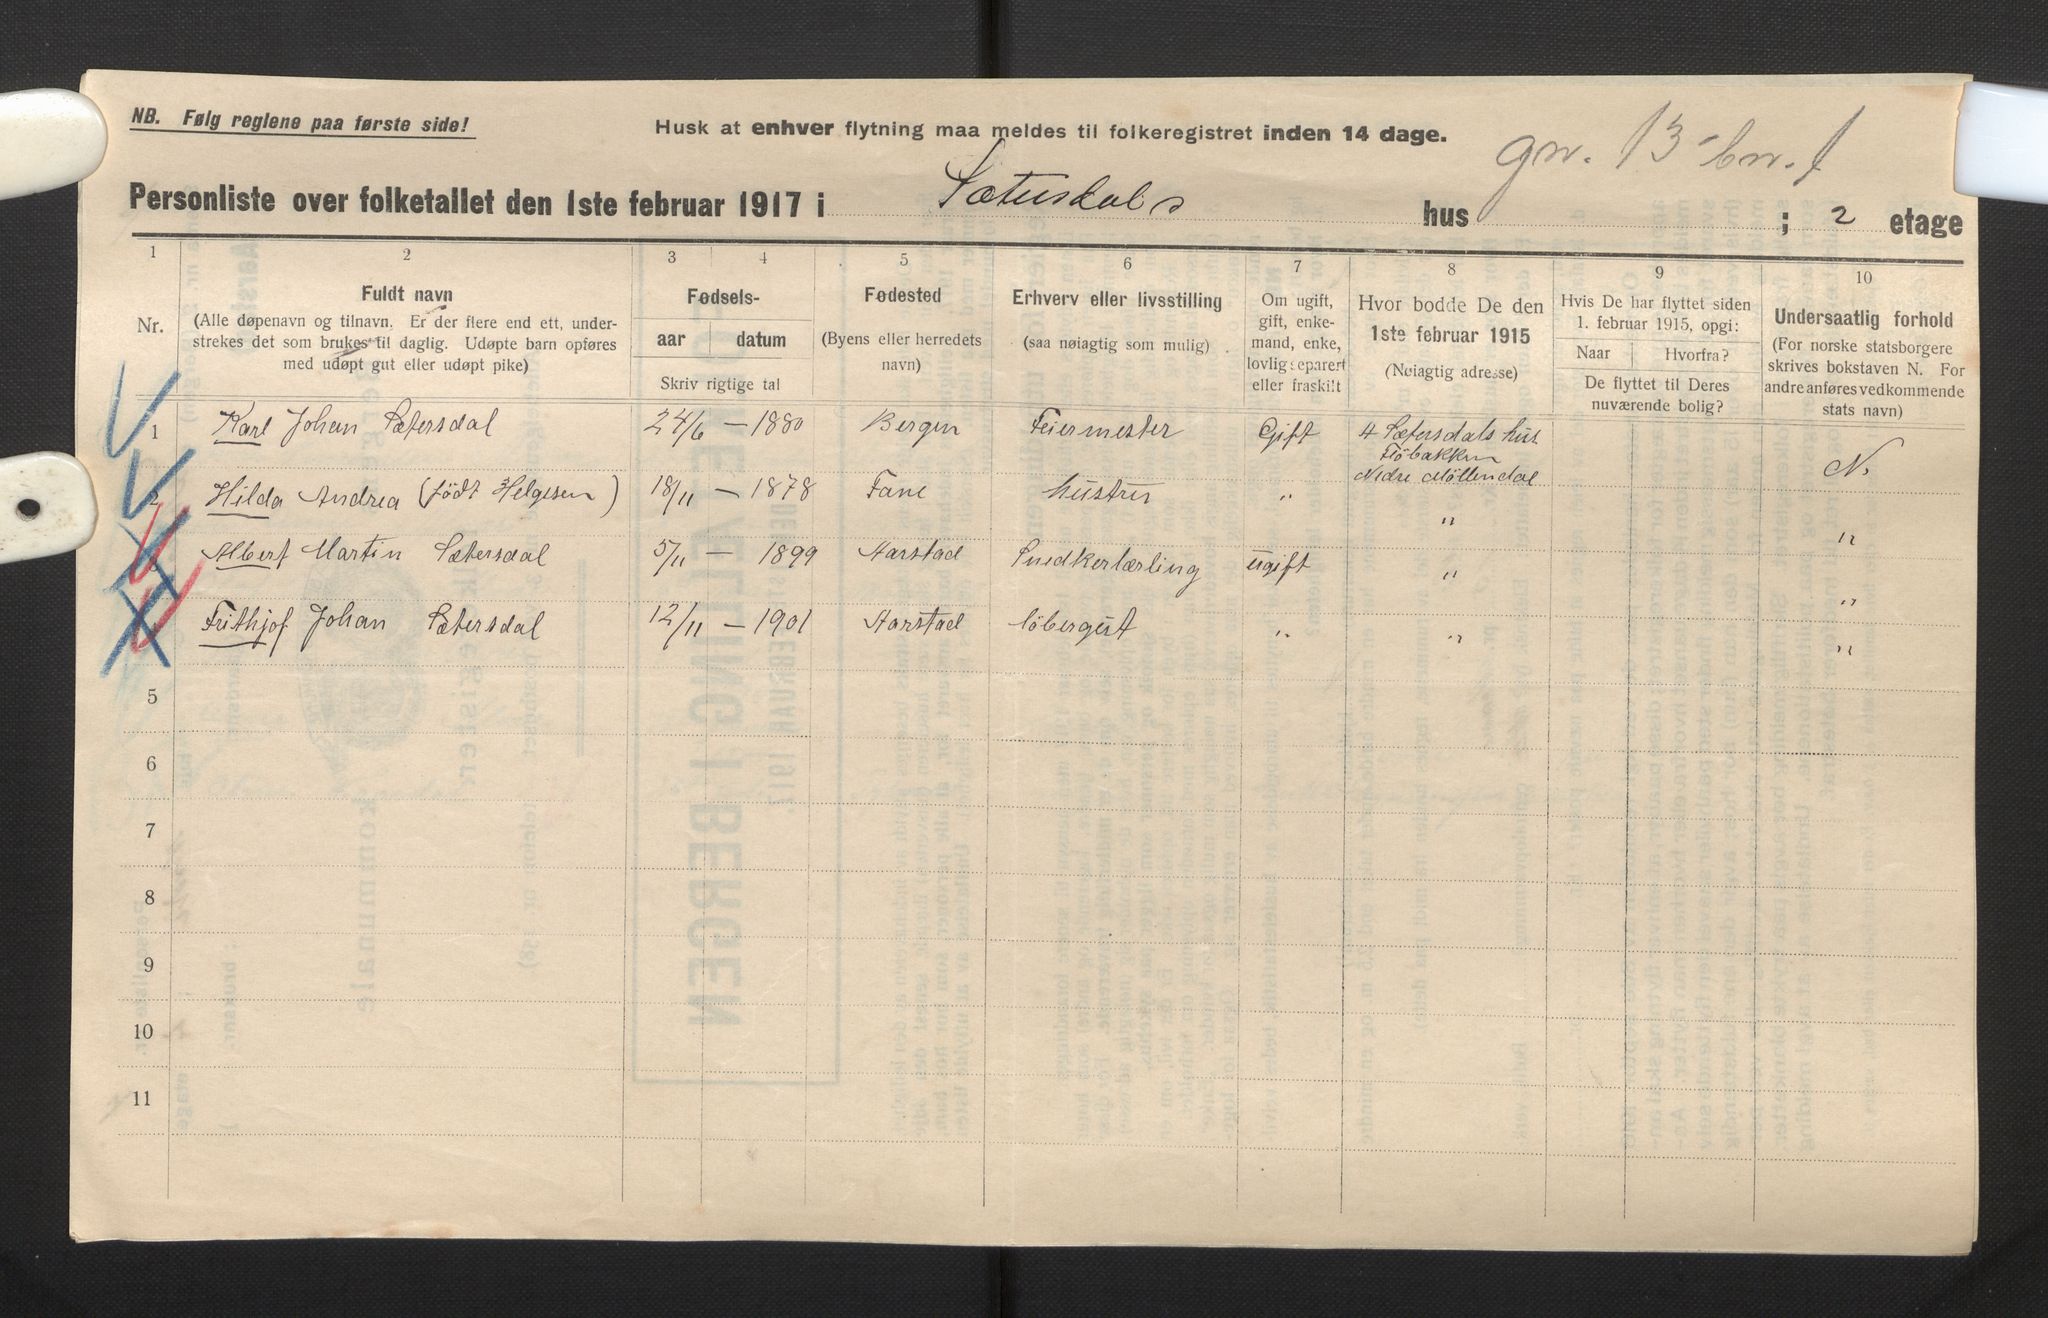 NB. Følg reglene paa første side!
Husk at enhver flytning maa meldes til folkeregistret inden 14 dage.
gn. 13 bn. 1
Personliste over folketallet den 1ste februar 1917 i Sætersdals hus ; 2 etage
1 2 3 4 5 6 7 8 9 10
Nr.
Fuldt navn
(Alle døpenavn og tilnavn. Er der flere end ett, under-
strekes det som brukes til daglig. Udøpte barn opføres
med udøpt gut eller udøpt pike)
Fødsels-
aar datum
Skriv rigtige tal
Fødested
(Byens eller herredets
navn)
Erhverv eller livsstilling
(saa nøiagtig som mulig)
Om ugift,
gift, enke-
mand, enke,
lovlig separert
eller fraskilt
Hvor bodde De den
1ste februar 1915
(Nøiagtig adresse)
Hvis De har flyttet siden
1. februar 1915, opgi:
Naar Hvorfra?
De flyttet til Deres
nuværende bolig?
Undersaatlig forhold
(For norske statsborgere
skrives bokstaven N. For
andre anføres vedkommende
stats navn)
1 Karl Johan Sætersdal 24/6 — 1880 Bergen Feiermester Gift 4 Sætersdals hus
Flöbakken
Nedre Möllendal N.
2 Hilda Andrea (födt Helgesen) 18/11 — 1878 Fane hustru " " "
3 Albert Martin Sætersdal 5/11 — 1899 Aarstad Snedkerlærling ugift " "
4 Frithjof Johan Sætersdal 12/11 — 1901 Aarstad löbergut " " "
5
6
7
8
9
10
11